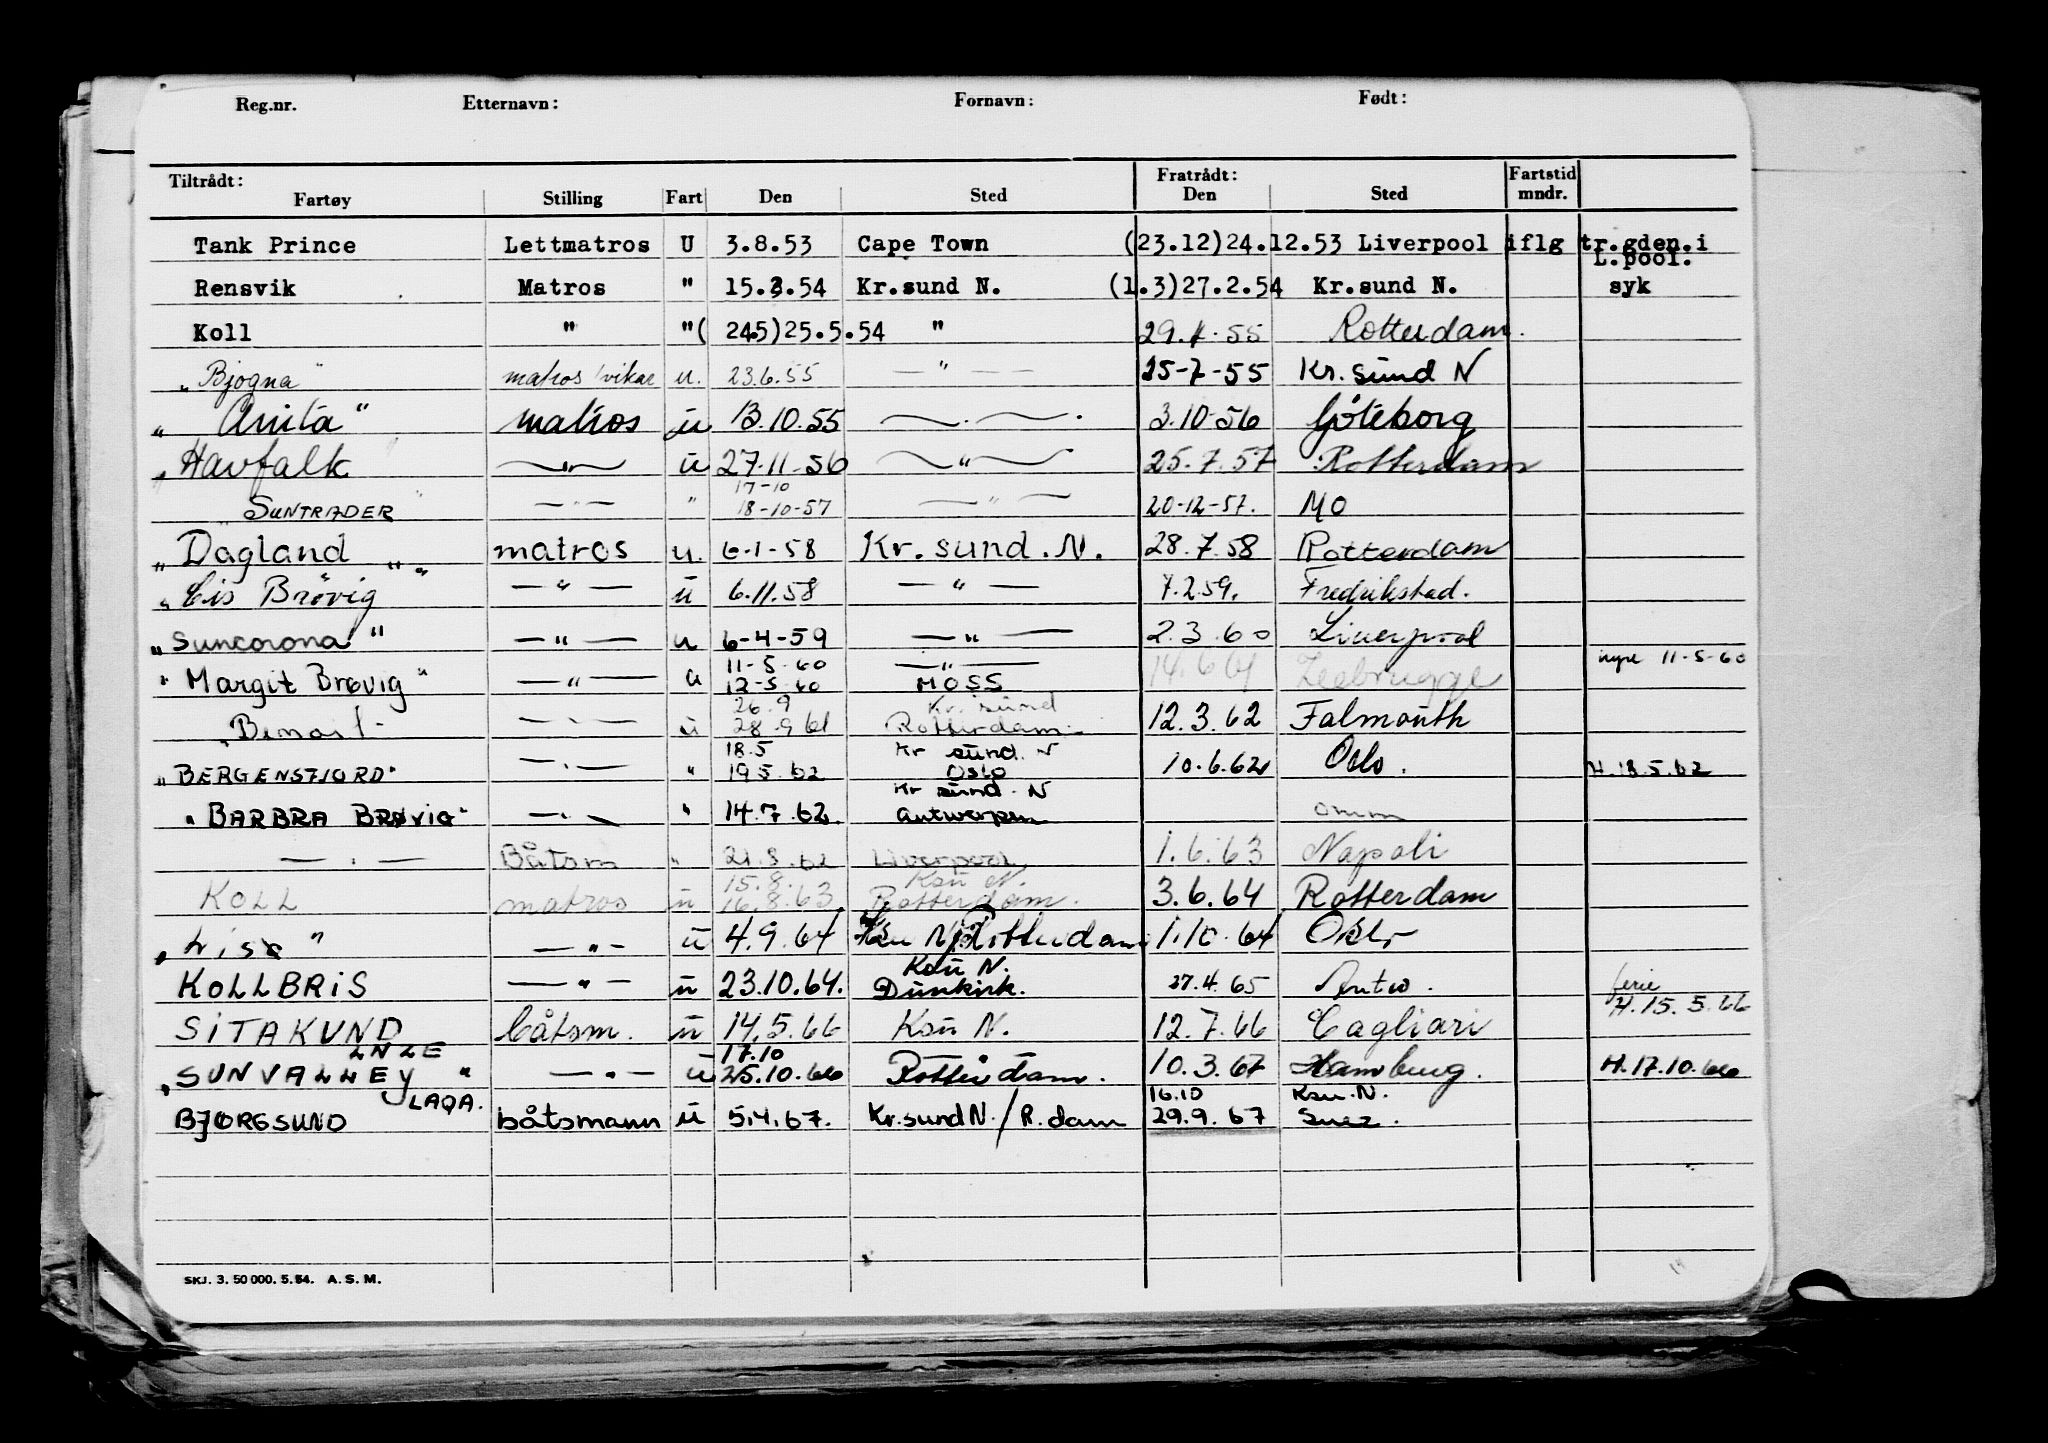 Reg.nr. Etternavn: Fornavn: Født:
Tiltrådt: Fratrådt: Fartstid
Fartøy Stilling Fart Den Sted Den Sted mndr.
Tank Prince Lettmatros U 3.8.53 Cape Town (23.12)24.12.53 Liverpool iflg tr.gden.i
L.pool.
Rensvik Matros " 15.2.54 Kr.sund N. (1.3)27.2.54 Kr.sund N. syk
Koll " "( 245)25.5.54 " 29.4.55 Rotterdam.
"Bjogna" matros/vikar u. 23.6.55 — " — 25-7-55 Kr. sund N
" Anita " matros u 13.10.55 — . — 3.10-56 Göteborg
"Havfalk — " — u 27-11-56 — " — 25.7.57 Rotterdam
17-10
"SUNTRADER" — " — " 18-10-57 — " — 20-12-57. MO
"Dagland" matros u. 6-1-58 Kr. sund. N. 28.7.58 Rotterdam
"Cis Brøvig" — " — u 6.11.58 — " — 7.2.59. Fredrikstad.
"Suncorona" — " — u 6-4-59 — " — 2.3.60 Liverpool
11-5-60 — " — 11-5-60
"Margit Brøvig" — " — u 12-5-60 MOSS 14.6.61 Zeebrugge
26.9 Kr. sund
— " — u 28.9 61 Rotterdam. 12.3.62 Falmouth
18.5 Kr sund. N
"BERGENSFJORD" — " — " 19.5.62 Oslo 10.6.62 Oslo. H. 18.5.62
Kr sund. N
"BARBRA BRØVIG" — " — " 14.7.62 Antwerpen omm
— " — Båtsm " 21.8.62 Liverpool 1.6.63 Napoli
15.8. Ksu N.
KOLL matros u 16.8.63 Rotterdam. 3.6.64 Rotterdam
"Lise" — " — u 4.9.64 Ksu N/Rotterdam 1.10.64 Oslo
Ksu N. ferie
KOLLBRIS — " — u 23.10.64. Dunkirk. 27.4.65 Antw. H. 15.5.66
SITAKUND båtsm. u 14.5.66 Ksu N. 12.7.66 Cagliari
LNZE 17.10
"SUNVALLEY" — " — u 25.10.66 Rotterdam. 10.3.67 Hamburg. H. 17.10.66
LAQA. 16.10 Ksu. N.
BJORGSUND båtsmann u 5.4.67. Kr.sund N./R.dam 29.9.67 Suez.
SKJ. 3. 50 000. 5. 54. A. S. M.